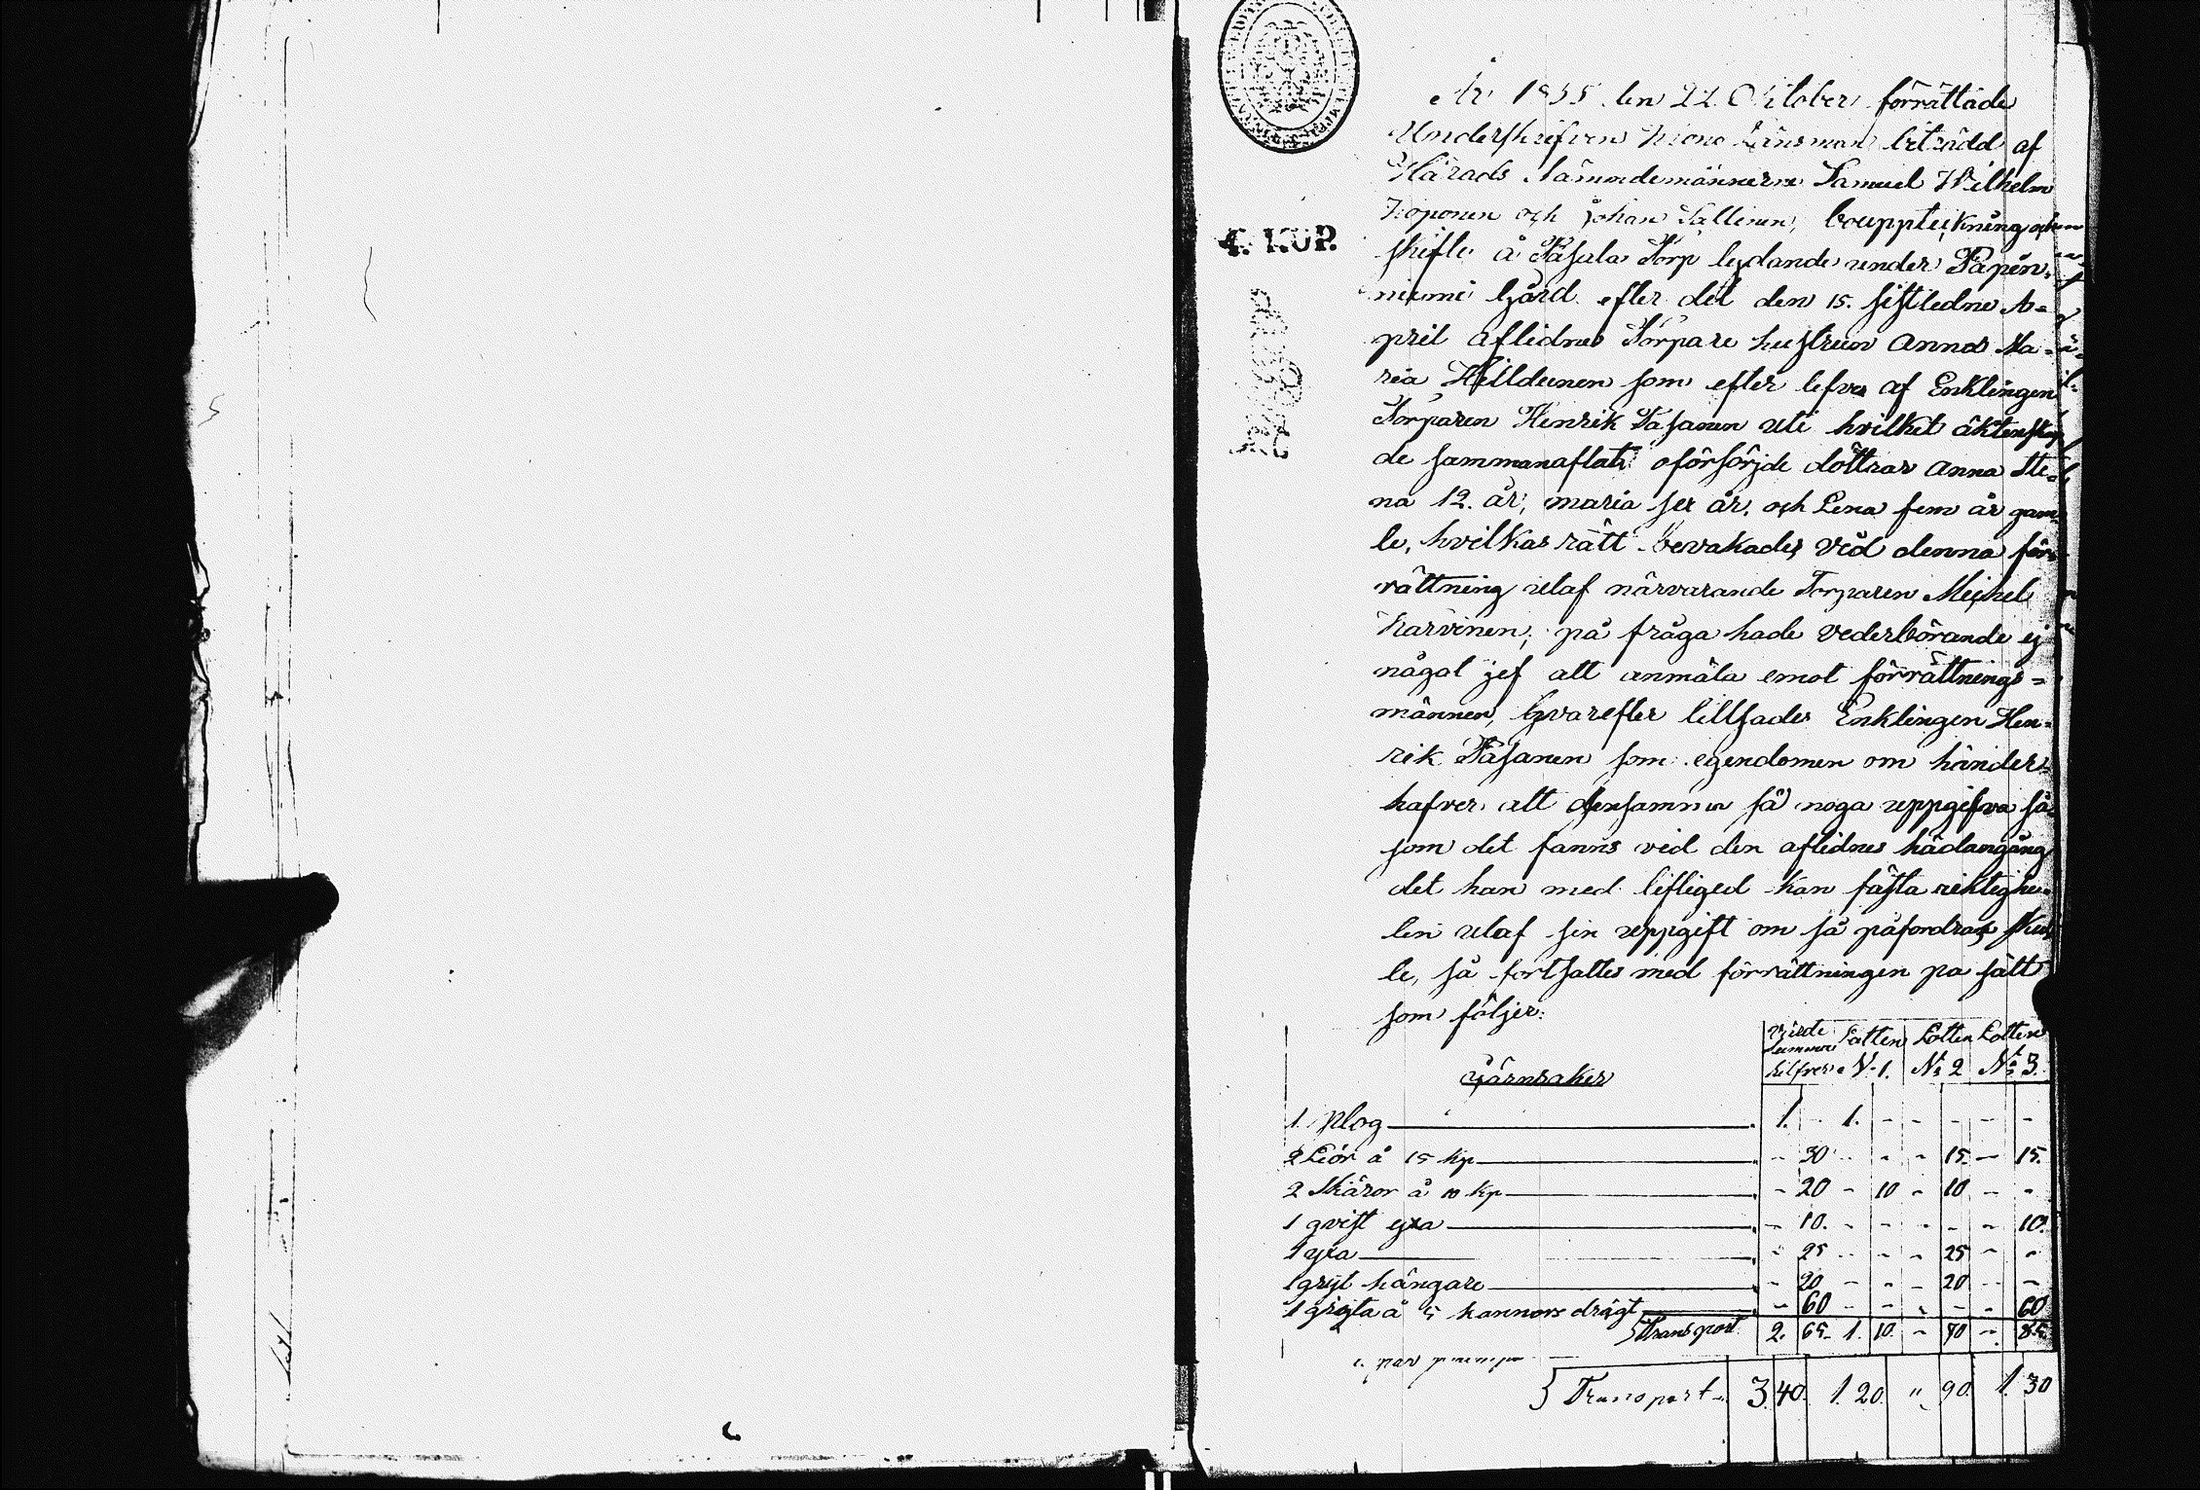 År 1855 den 22 October förrättade
Underskrifven Krono Länsman biträdd af
Härads Nämndemännerne Samuel Wilhelm
Koponen och Johan Tallinen, bouppteckning och
skifte å Tasala Torp lydande under Papin-
niemi Gård efter det den 15. sistledne A=
pril aflidne Torpare hustrun Anna Ma=
ria Hilldunen som efter lefver af Enklingen
Torparen Henrik Tasanen uti hvilket äktenskap
de sammanaflat oförsörjde döttrar Anna Ste=
na 12. år, maria sex år, och Lena fem år gam=
le, hvilkas rätt bevakades vid denna för=
rättning utaf närvarande Torparen Michel
Karvinen; på fråga hade vederbörande ej
något jef att anmäla emot förrättnings=
männen, hvarefter tillsades Enklingen Hen=
rik Tasanen som egendomen om händer=
hafver att densamma så noga uppgifva så=
som det fanns vid den aflidnes hädangång
det han med lifliged kan fästa riktighe=
ten utaf sin uppgift om så påfordras skul
le, så fortsattes med förrättningen på sätt
som följer:
4. KOP.
Värde summa silfver Lotten N:1. Lotten N:2 Lotten N:3.
Järnsaker
1. Plog 1. - 1. - - - - -
2 Liör å 15 kp - 30 - - - 15. - 15.
2 Skäror å 10 kp - 20 - 10 - 10 - -
1 qvist yxa - 10. - - - - - 10.
1 yxa - 25 - - - 25 - -
1 gryt hängare - 20 - - - 20 - -
1 gryta å 5 kannors drägt - 60 - - - - - 60
Transport 2. 65 1. 10. - 70 - 85
Transport 3. 40. 1. 20. " 90. 1. 30